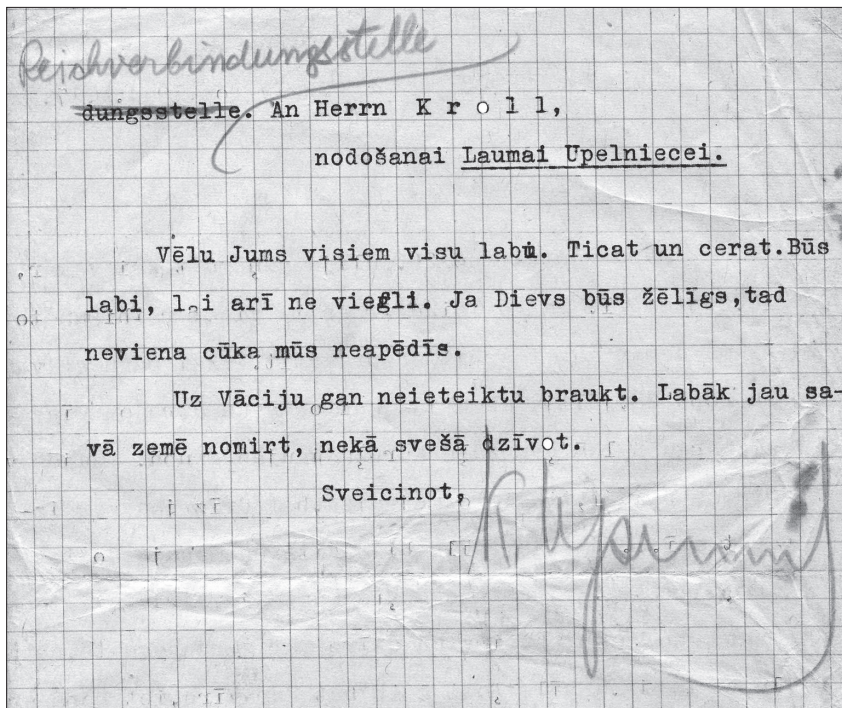 Reichverbindungsstelle
dungsstelle. An Herrn K r o l l,
nodošanai Laumai Upelniecei.
Vēlu Jums visiem visu labu. Ticat un cerat.Būs
labi, lai arī ne viegli. Ja Dievs būs žēlīgs,tad
neviena cūka mūs neapēdīs.
Uz Vāciju gan neieteiktu braukt. Labāk jau sa-
vā zemē nomirt, nekā svešā dzīvot.
Sveicinot,